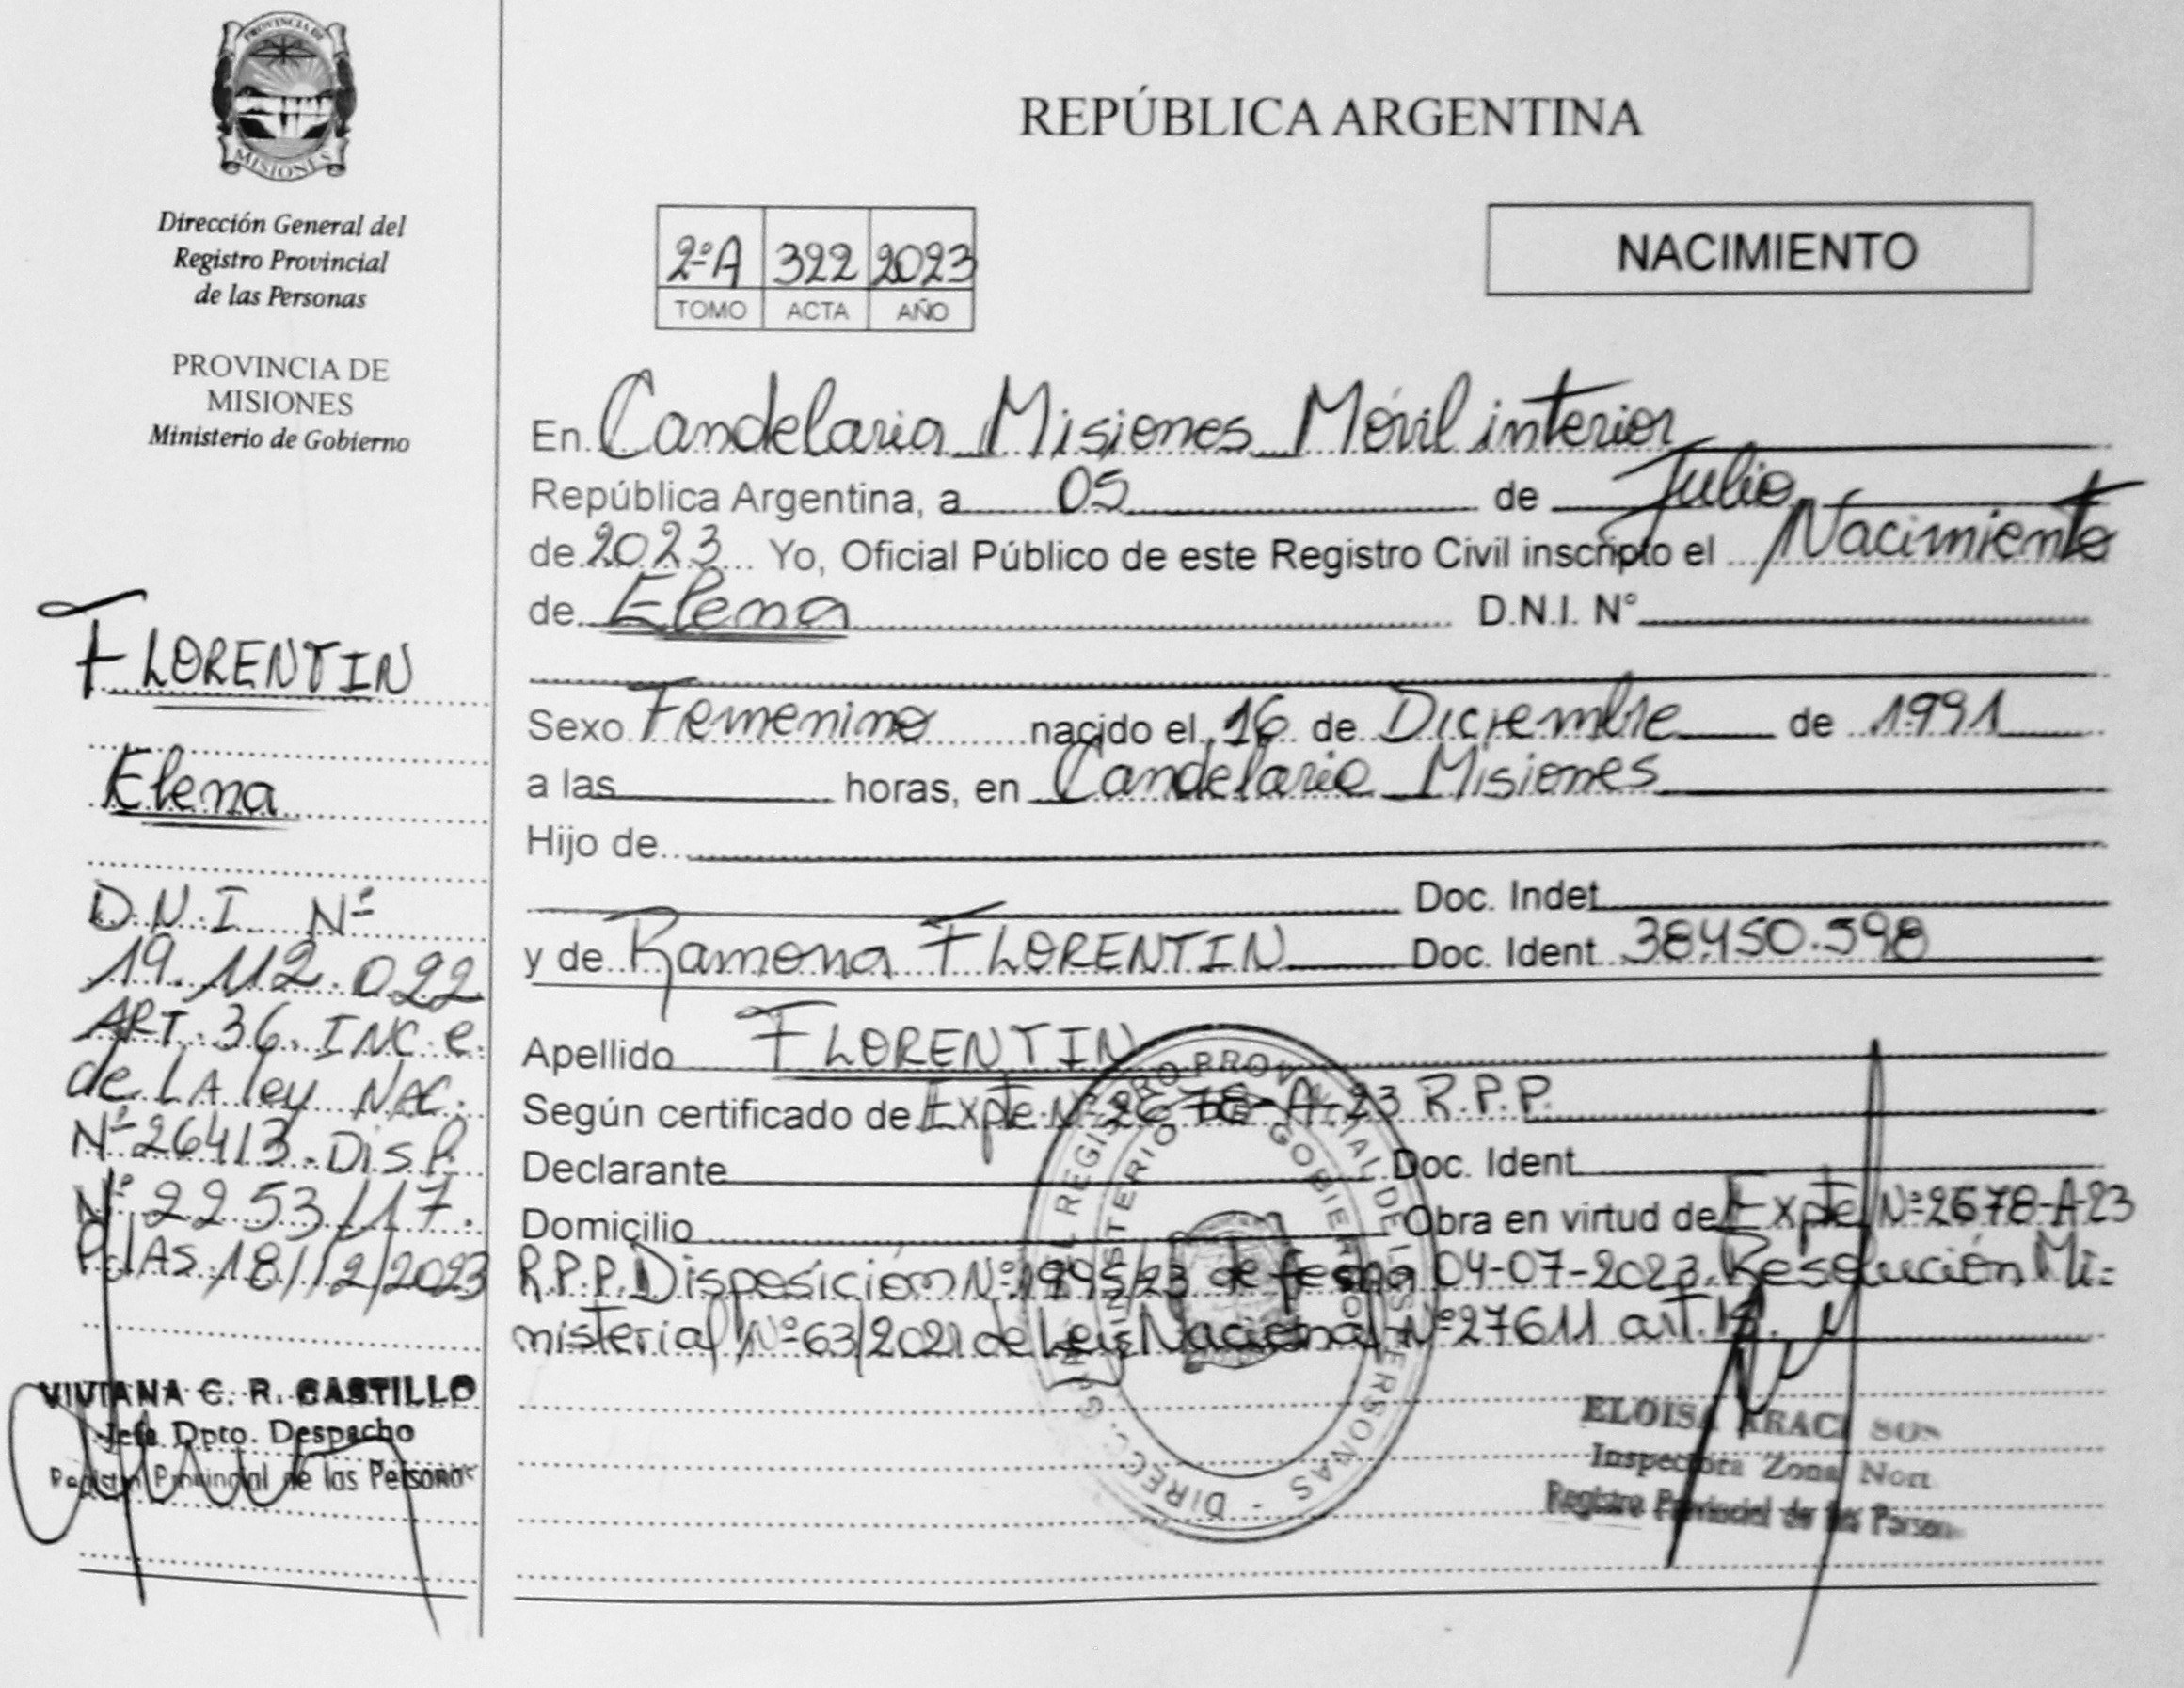 PROVINCIA DE
MISIONES
Dirección General del
Registro Provincial
de las Personas
PROVINCIA DE
MISIONES
Ministerio de Gobierno
FLORENTIN
Elena
D.N.I. Nº
19.112.022
ART. 36. INC. e.
de LA ley NAC.
Nº 26413. Disp.
Nº 2253/17.
Pdas. 18/12/2023
VIVIANA C. R. CASTILLO
Jefa Dpto. Despacho
Registro Provincial de las Personas
REPÚBLICA ARGENTINA
2ºA 322 2023
TOMO ACTA AÑO
NACIMIENTO
En Candelaria Misiones Móvil interior
República Argentina, a 05 de Julio
de 2023 Yo, Oficial Público de este Registro Civil inscripto el Nacimiento
de Elena D.N.I. N°
Sexo Femenino nacido el 16 de Diciembre de 1991
a las horas, en Candelaria Misiones
Hijo de
Doc. Indet
y de Ramona FLORENTIN Doc. Ident 38.450.598
Apellido FLORENTIN
Según certificado de Expte Nº 2678-A-23 R.P.P.
Declarante Doc. Ident
Domicilio Obra en virtud de Expte Nº 2678-A-23
R.P.P. Disposición Nº 1995/23 de fecha 04-07-2023. Resolución Mi-
nisterial Nº 63/2021 de Ley Nacional Nº 27611 art.
ELOISA ARACI
Inspectora Zona
Registro Provincial de las
DIREC. GRAL. DEL REGISTRO PROVINCIAL DE LAS PERSONAS
MINISTERIO DE GOBIERNO